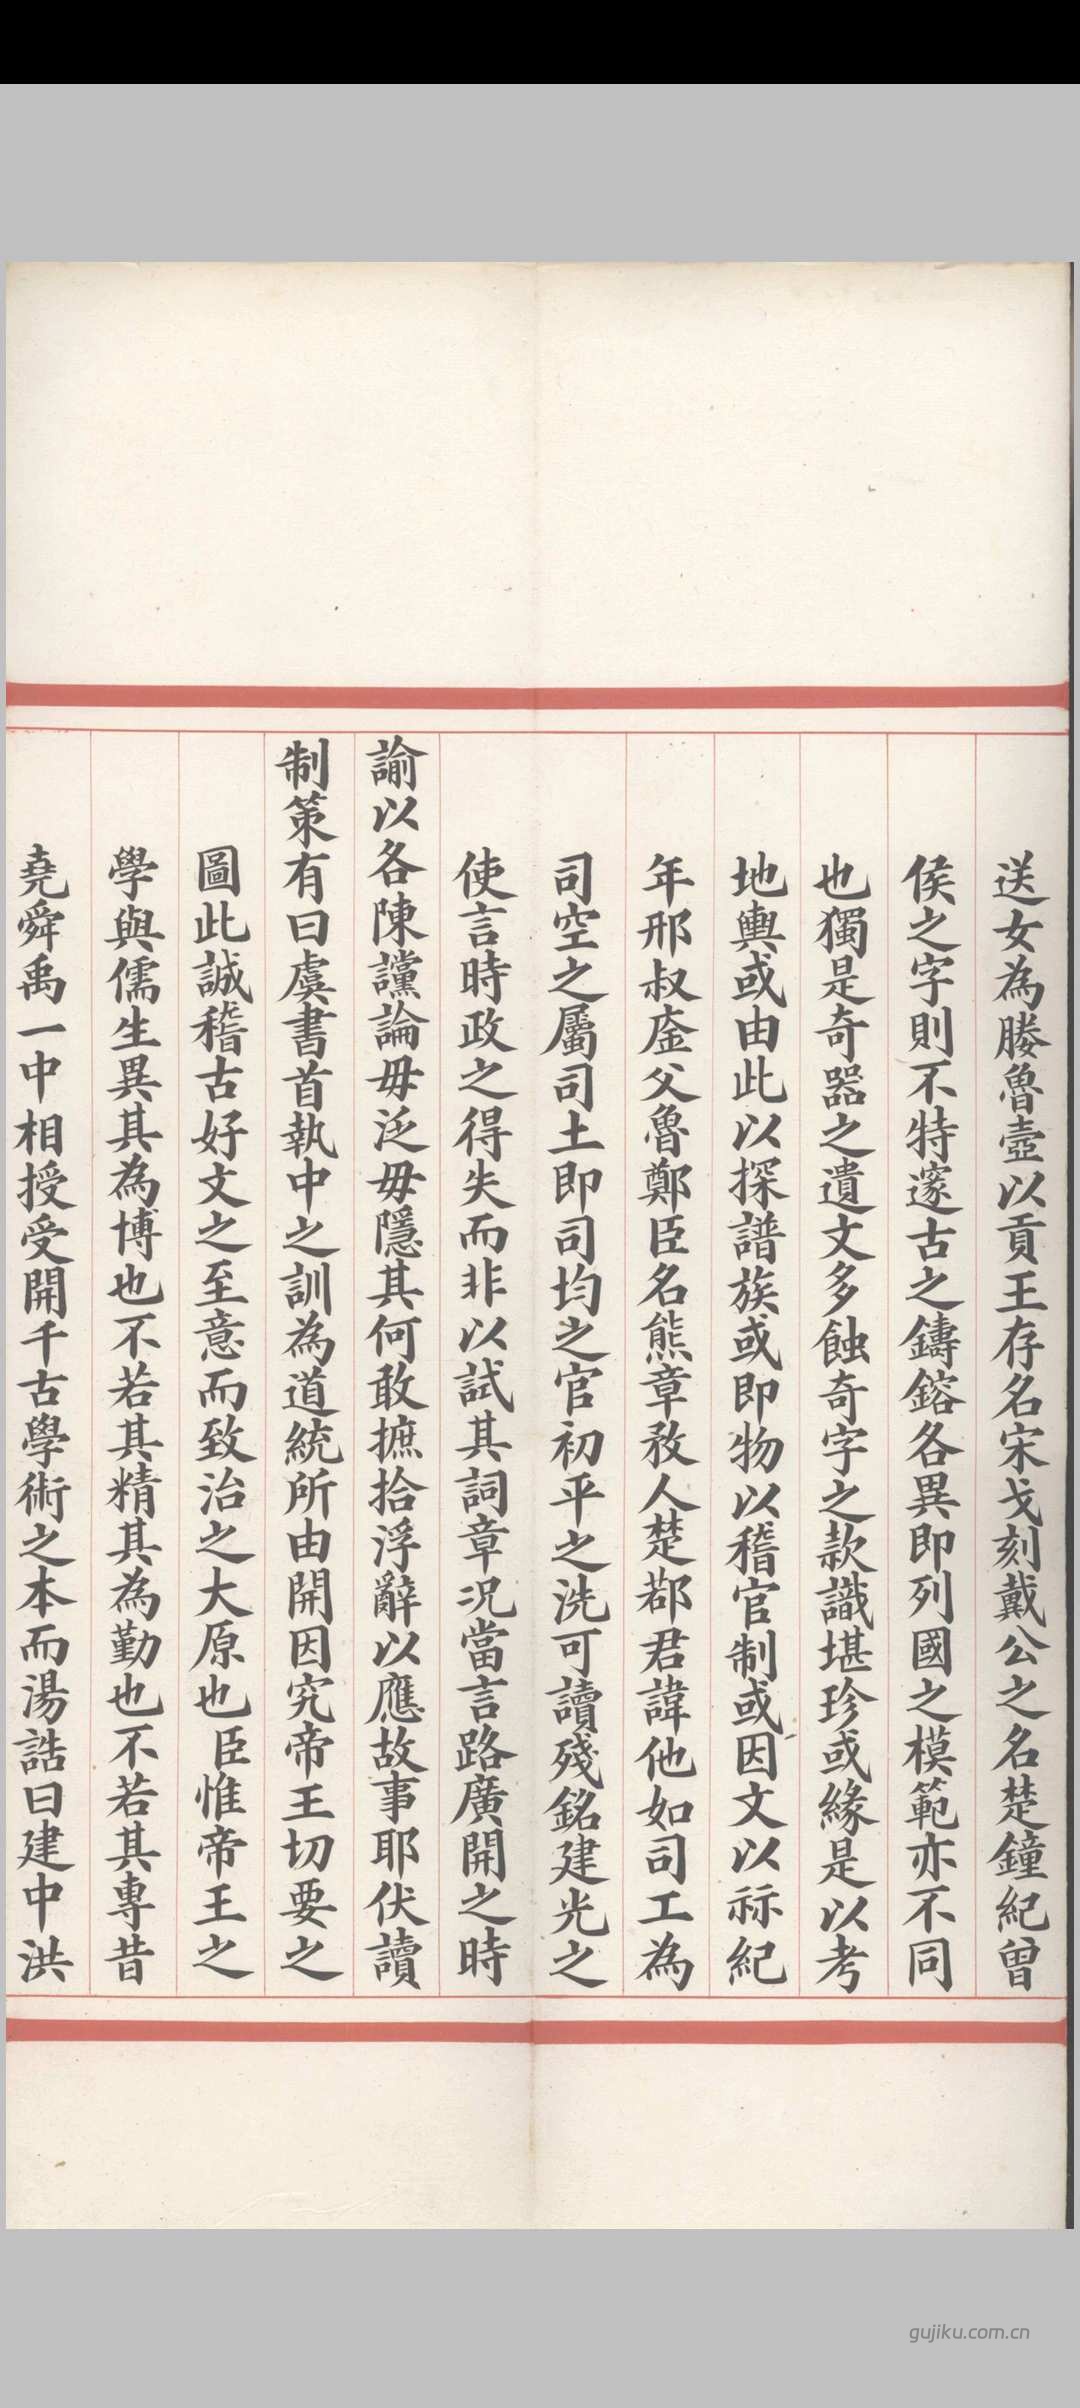 送女為媵魯壺以貢王存名宋戈刻戴公之名楚鐘紀曾
侯之字則不特邃古之鑄鎔各異即列國之模範亦不同
也獨是奇器之遺文多蝕奇字之款識堪珍或緣是以考
地輿或由此以探譜族或即物以稽官制或因文以祘紀
年邢叔㢑父魯鄭臣名熊章敄人楚鄀君諱他如司工為
司空之屬司土即司均之官初平之洗可讀殘銘建光之
使言時政之得失而非以試其詞章況當言路廣開之時
諭以各陳讜論毋泛毋隱其何敢摭拾浮辭以應故事耶伏讀
制策有曰虞書首執中之訓為道統所由開因究帝王切要之
圖此誠稽古好文之至意而致治之大原也臣惟帝王之
學與儒生異其為博也不若其精其為勤也不若其專昔
堯舜禹一中相授受開千古學術之本而湯誥曰建中洪
gujiku.com.cn